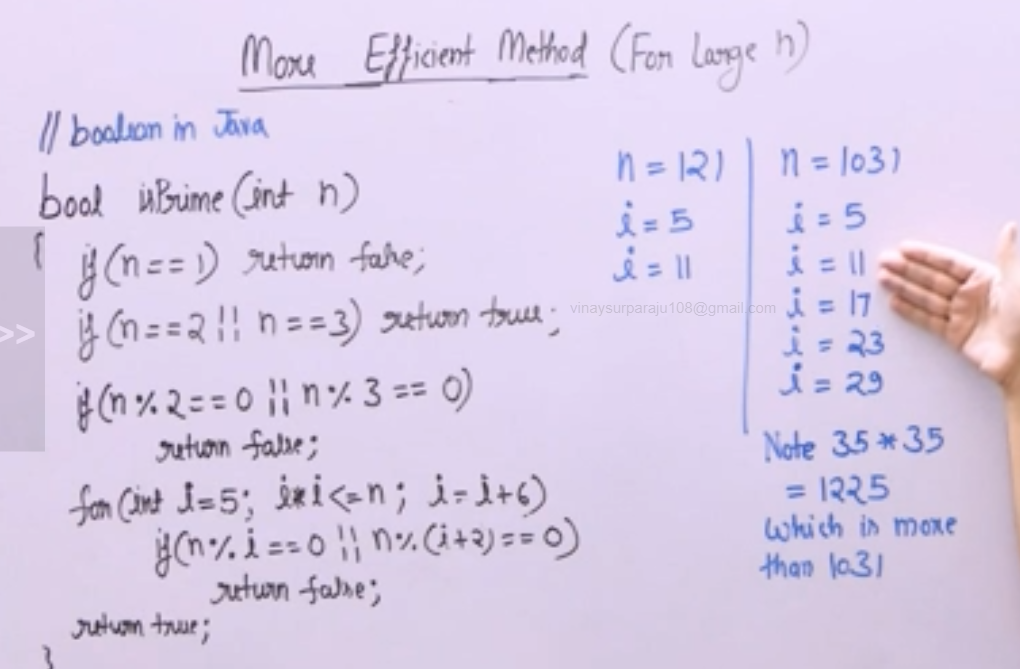 More Efficient Method (For Large n)
// boolean in Java
bool isPrime(int n)
{
if(n==1) return false;
if(n==2 || n==3) return true;
if(n%2==0 || n%3==0)
return false;
for(int i=5; i*i<=n; i=i+6)
if(n%i==0 || n%(i+2)==0)
return false;
return true;
}
n=121
i=5
i=11
n=1031
i=5
i=11
i=17
i=23
i=29
Note 35*35
=1225
which is more
than 1031
vinaysurparaju108@gmail.com
>>